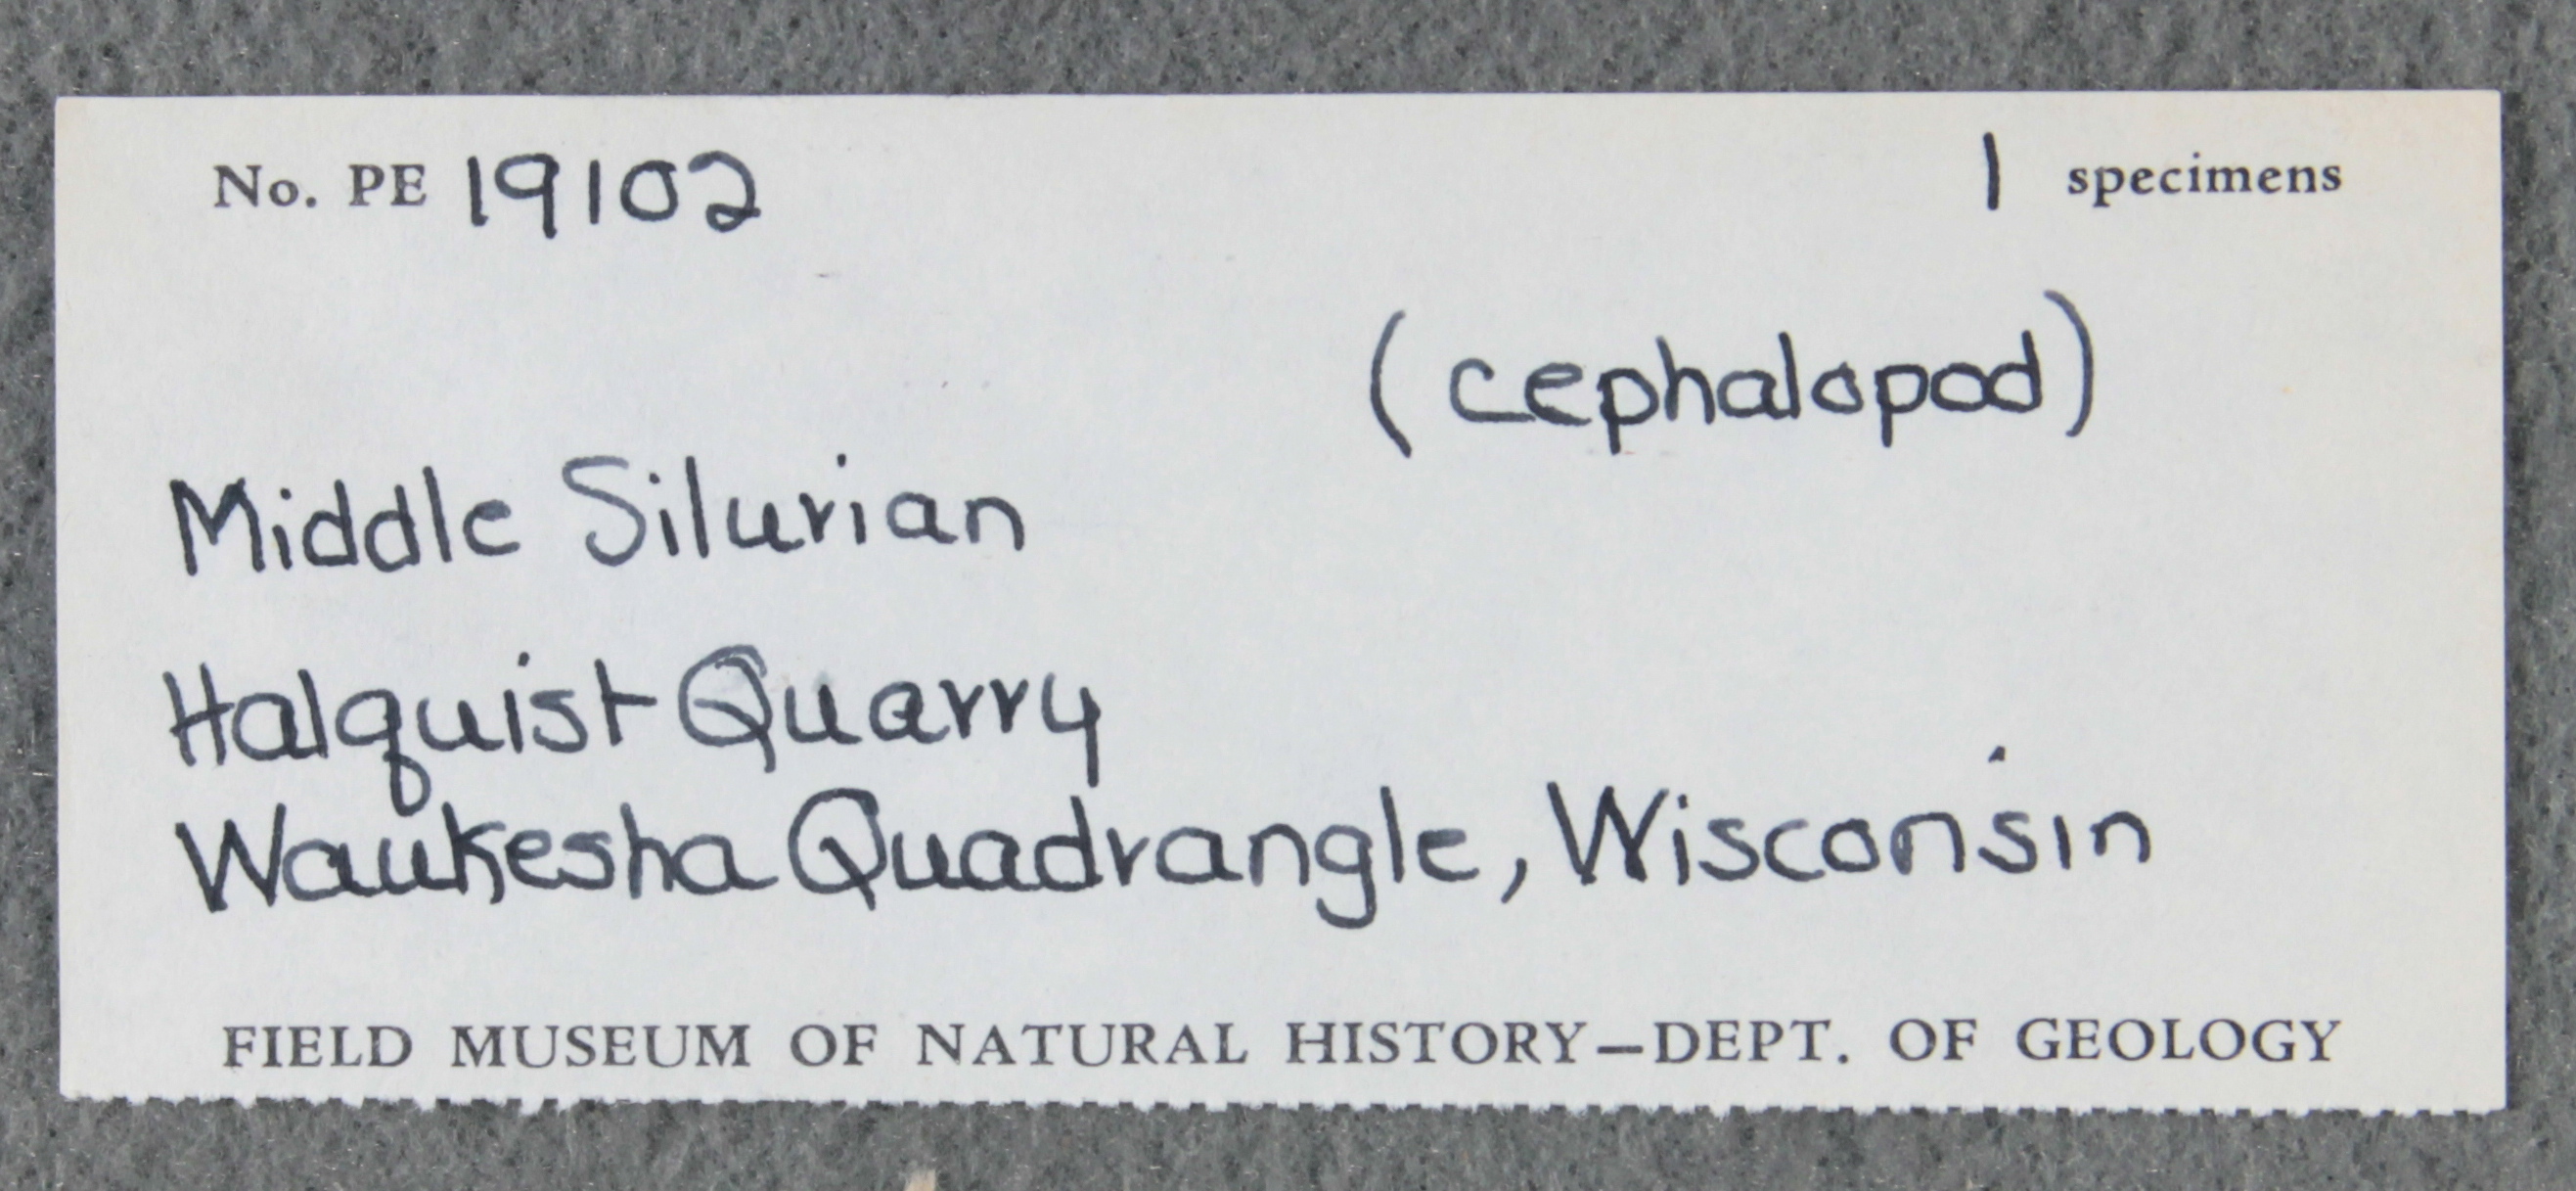 No. PE 19102 1 specimens
(cephalopod)
Middle Silurian
Halquist Quarry
Waukesha Quadrangle, Wisconsin
FIELD MUSEUM OF NATURAL HISTORY—DEPT. OF GEOLOGY